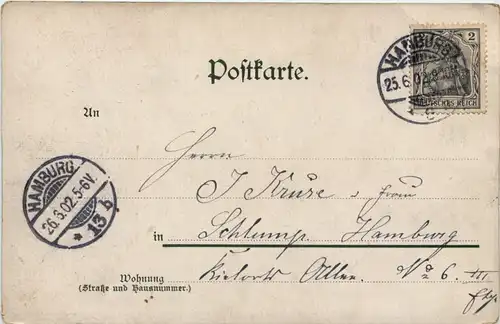 Postkarte.
HAMBURG
25.6.02.
2
DEUTSCHES REICH
An
Herrn
J Kruse u Frau
in Schlump Hamburg
HAMBURG
26.6.02.5-6V.
* 13 b
Wohnung
(Straße und Hausnummer.)
Allee. No 6. III